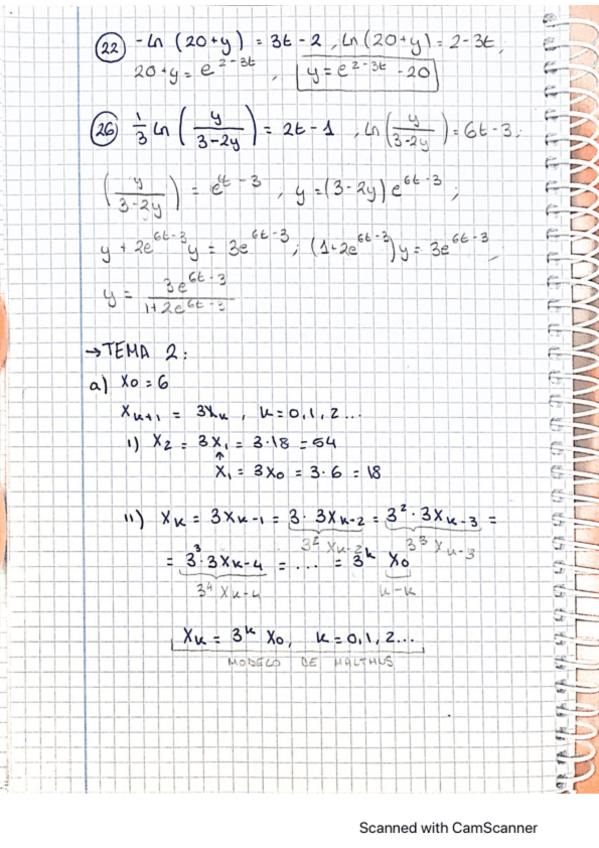 22 -ln (20+y) = 3t - 2, ln (20+y) = 2-3t,
20+y = e^2-3t, y = e^2-3t - 20
26 1/3 ln (y/3-2y) = 2t - 1, ln (y/3-2y) = 6t-3;
(y/3-2y) = e^6t-3, y = (3-2y) e^6t-3;
y + 2e^6t-3 y = 3e^6t-3; (1+2e^6t-3) y = 3e^6t-3;
y = 3e^6t-3/1+2e^6t-3
→ TEMA 2:
a) X0 = 6
Xk+1 = 3Xk, k=0,1,2...
i) X2 = 3X1 = 3·18 = 54
↑
X1 = 3X0 = 3·6 = 18
ii) Xk = 3Xk-1 = 3·3Xk-2 = 3^2·3Xk-3 =
3^2 Xk-2 3^3 Xk-3
= 3^3·3Xk-4 = ... = 3^k X0
3^4 Xk-4 k-k
Xk = 3^k X0, k=0,1,2...
MODELO DE MALTHUS
Scanned with CamScanner